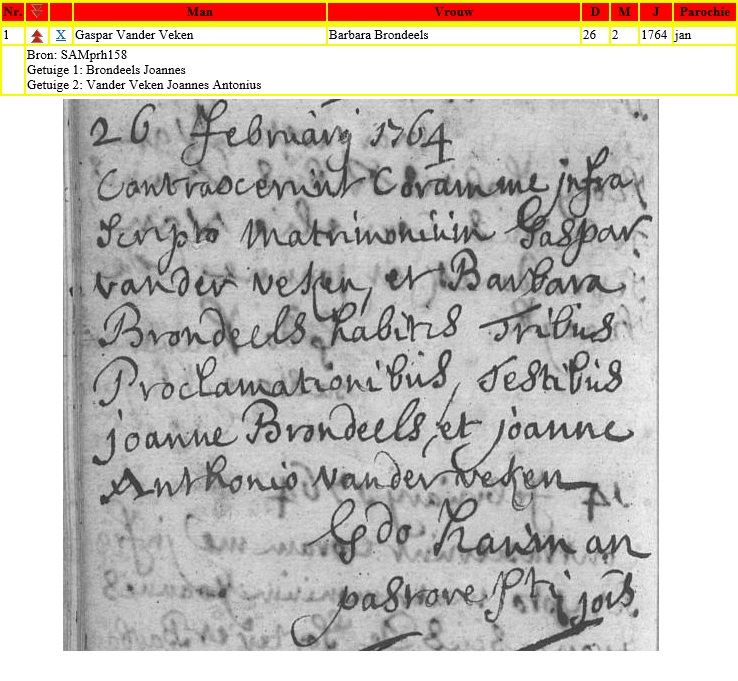 Nr. Man Vrouw D M J Parochie
1 X Gaspar Vander Veken Barbara Brondeels 26 2 1764 jan
Bron: SAMprh158
Getuige 1: Brondeels Joannes
Getuige 2: Vander Veken Joannes Antonius
26 februarij 1764
Contraxerunt Coram me infra
Scripto Matrimonium Gaspar
vander veken, et Barbara
Brondeels, habitis Tribus
Proclamationibus, Testibus
joanne Brondeels, et joanne
Anthonio vander veken
pastore Sti jois